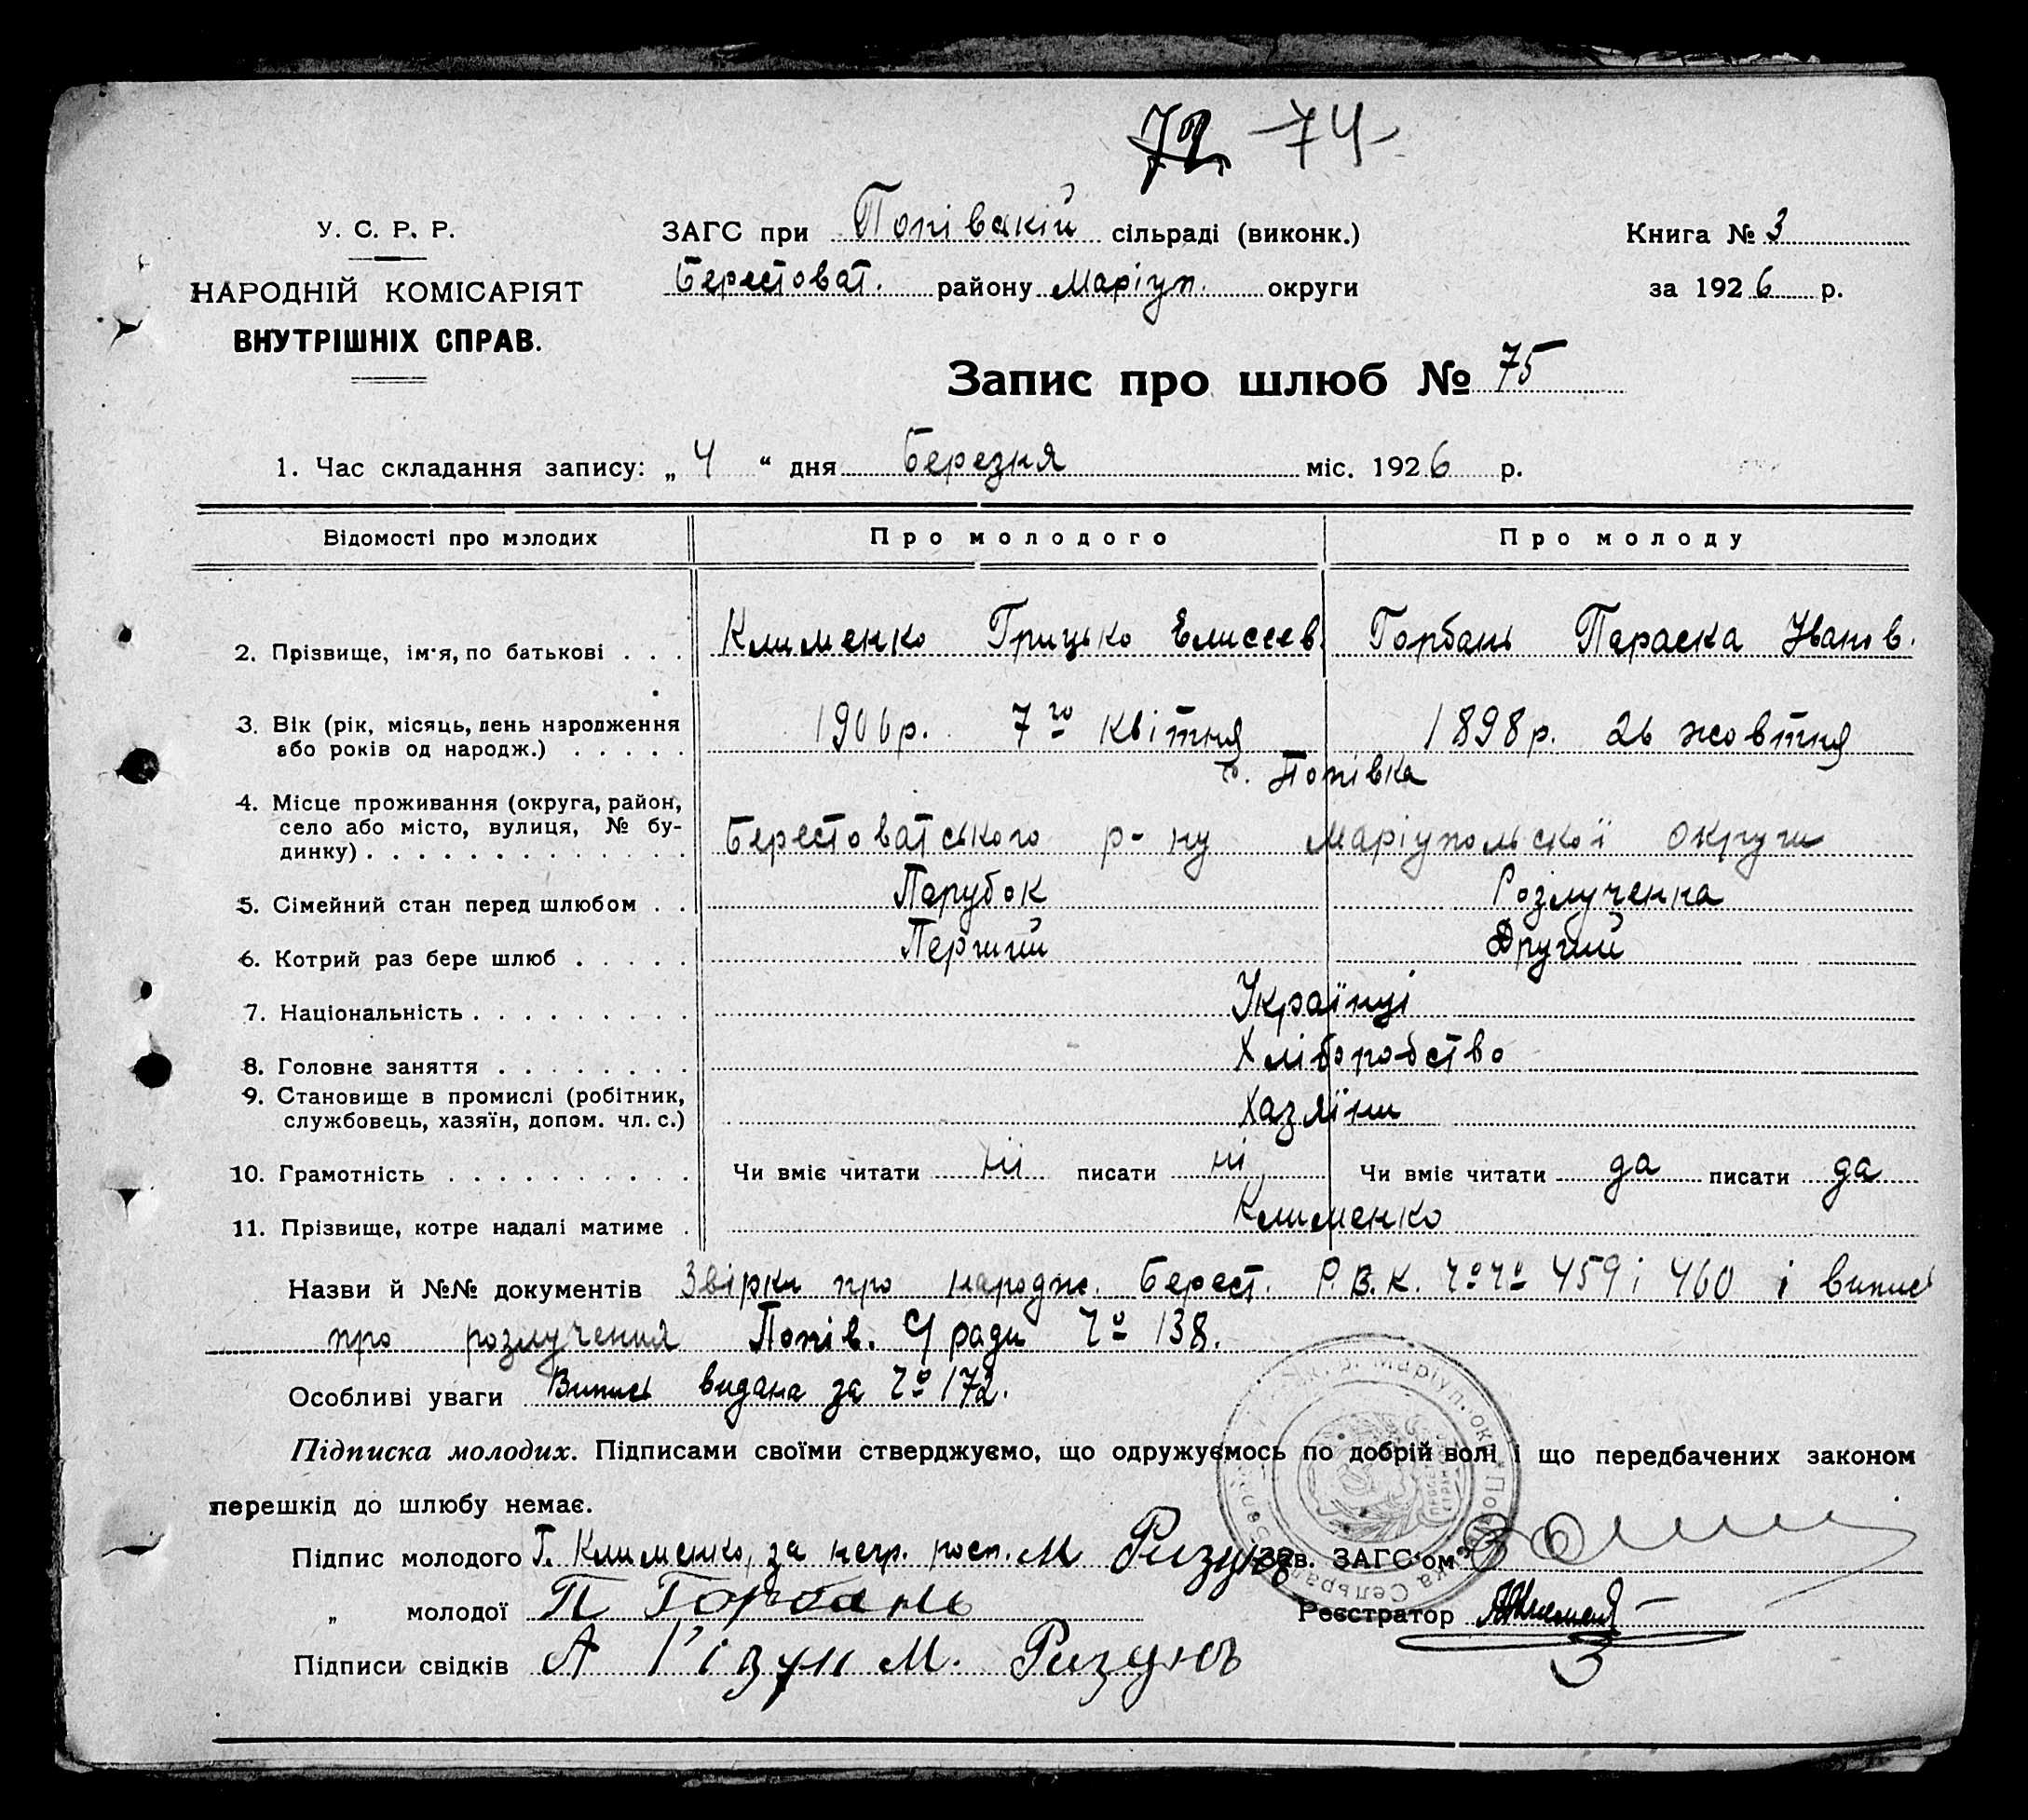 72 74
У. С. Р. Р.
НАРОДНІЙ КОМІСАРІЯТ
ВНУТРІШНІХ СПРАВ.
ЗАГС при Попівській сільраді (виконк.)
Берестоват. району Маріуп. округи
Книга № 3
за 1926 р.
Запис про шлюб № 75
1. Час складання запису: „ 4 “ дня Березня міс. 1926 р.
Відомості про молодих Про молодого Про молоду
2. Прізвище, ім'я, по батькові . . . Клименко Грицько Елисеев. Горбань Параска Іванів.
3. Вік (рік, місяць, день народження 1906р. 7го квітня 1898р. 26 жовтня
або років од народж.) . . . . .
с. Попівка
4. Місце проживання (округа, район,
село або місто, вулиця, № бу-
динку) . . . . . . . . . . . . . Берестоватського р-ну Маріупольської округи
5. Сімейний стан перед шлюбом . . Парубок Розлученка
6. Котрий раз бере шлюб . . . . . Перший Другий
7. Національність . . . . . . . . . Українці
8. Головне заняття . . . . . . . . Хліборобство
9. Становище в промислі (робітник,
службовець, хазяїн, допом. чл. с.) Хазяїни
10. Грамотність . . . . . . . . . . Чи вміє читати ні писати ні Чи вміє читати да писати да
11. Прізвище, котре надалі матиме . Клименко
Назви й №№ документів Звірки про народж. Берест. Р.В.К. Чо Чо 459 і 460 і випись
про розлучення Попів. С/ради Чо 138.
Особливі уваги Випись видана за Чо 172.
Підписка молодих. Підписами своїми стверджуємо, що одружуємось по добрій волі і що передбачених законом
перешкід до шлюбу немає.
Підпис молодого Г. Клименко, за негр. росп. М Ризунъ Зав. ЗАГС'ом
„ молодої П Горбань Реєстратор
Підписи свідків А Різун М. Ризунъ